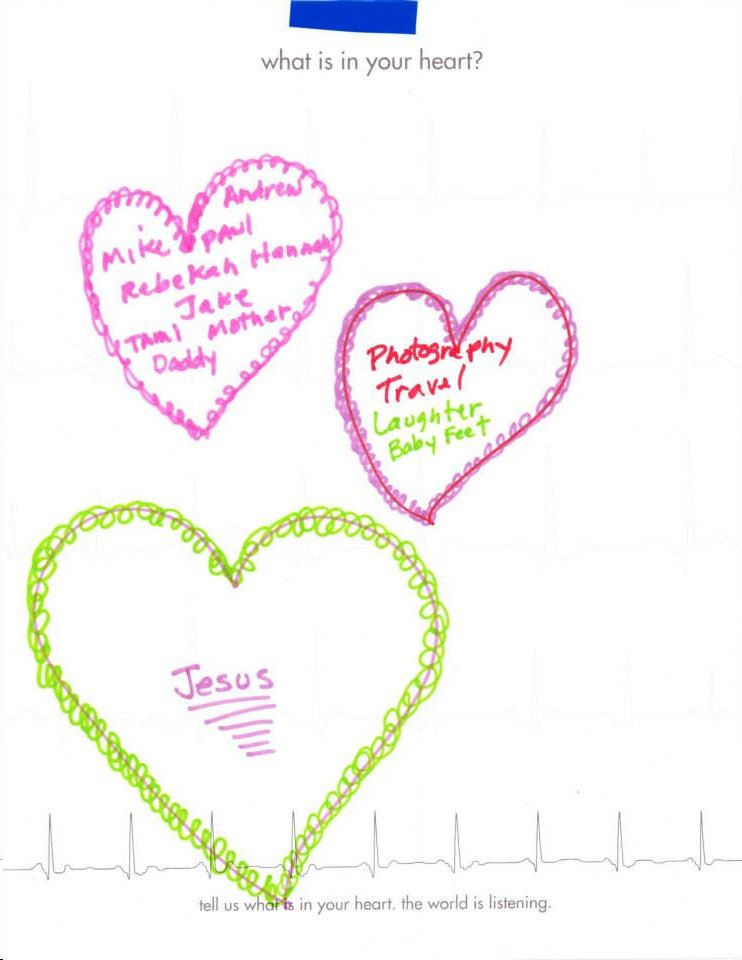 what is in your heart?
Andrew
Mike Paul
Rebekah Hannah
Jake
Tami Mother
Daddy
Photography
Travel
Laughter
Baby Feet
Jesus
tell us what is in your heart. the world is listening.